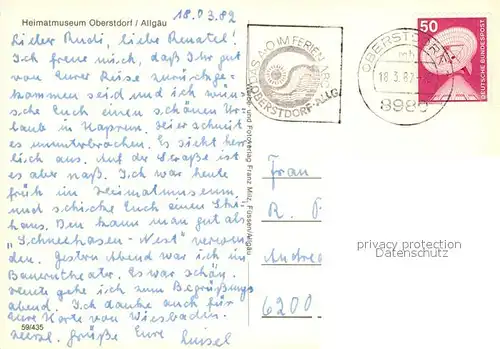 18.03.82
Heimatmuseum Oberstdorf / Allgäu
Lieber Rudi, liebe Renate!
Ich freue mich, daß Ihr gut
von Eurer Reise zurückge-
kommen seid und ich wün-
sche Euch einen schönen Ur-
laub in Kaprun. Hier schneit
es ununterbrochen. Es sieht herr-
lich aus. Auf der Straße ist
es aber naß. Ich war heute
früh im Heimatmuseum
und schicke Euch einen
haus. Den kann man gut als
"Schneehasen-Nest" verwen-
den. Gestern Abend war ich im
Bauerntheater. Es war schön.
Heute gehe ich zum Begrüßungs-
abend. Ich danke auch für
Eure Karte von Wiesbaden.
Herzl. Grüße Eure Luisel
59/435
DAS A-O IM FERIEN
OBERSTDORF-ALLG.
OBERSTDORF
18.3.82
8980
50
DEUTSCHE BUNDESPOST
Foto und Fotoverlag Franz Milz, Füssen/Allgäu
Frau
R. P
Andrea
6200
privacy protection
Datenschutz